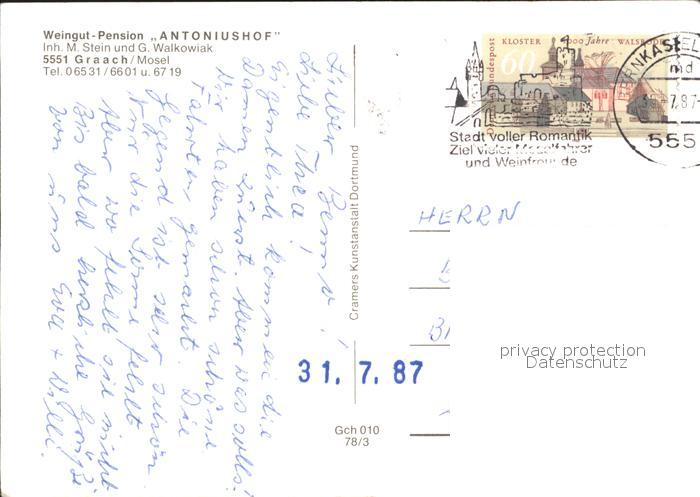 Weingut-Pension „ANTONIUSHOF"
Inh. M. Stein und G. Walkowiak
5551 Graach/Mosel
Tel. 06531/6601 u. 6719
Lieber Benno!
Liebe Thea!
Eigentlich kommen die
Damen zuerst. Aber was solls!
Wir haben schon schöne
Fahrten gemacht. Die
Gegend ist sehr schön.
Nur die Sonne fehlt.
Aber wo fehlt sie nicht
Bis bald herzliche Grüße
von uns Eva + Willi.
Cramers Kunstanstalt Dortmund
31. 7. 87
Gch 010
78/3
KLOSTER 1000 Jahre WALSRODE
60
bundespost
Stadt voller Romantik
Ziel vieler Moselfahrer
und Weinfreunde
BERNKASTEL
md
7.87
555
HERRN
privacy protection
Datenschutz